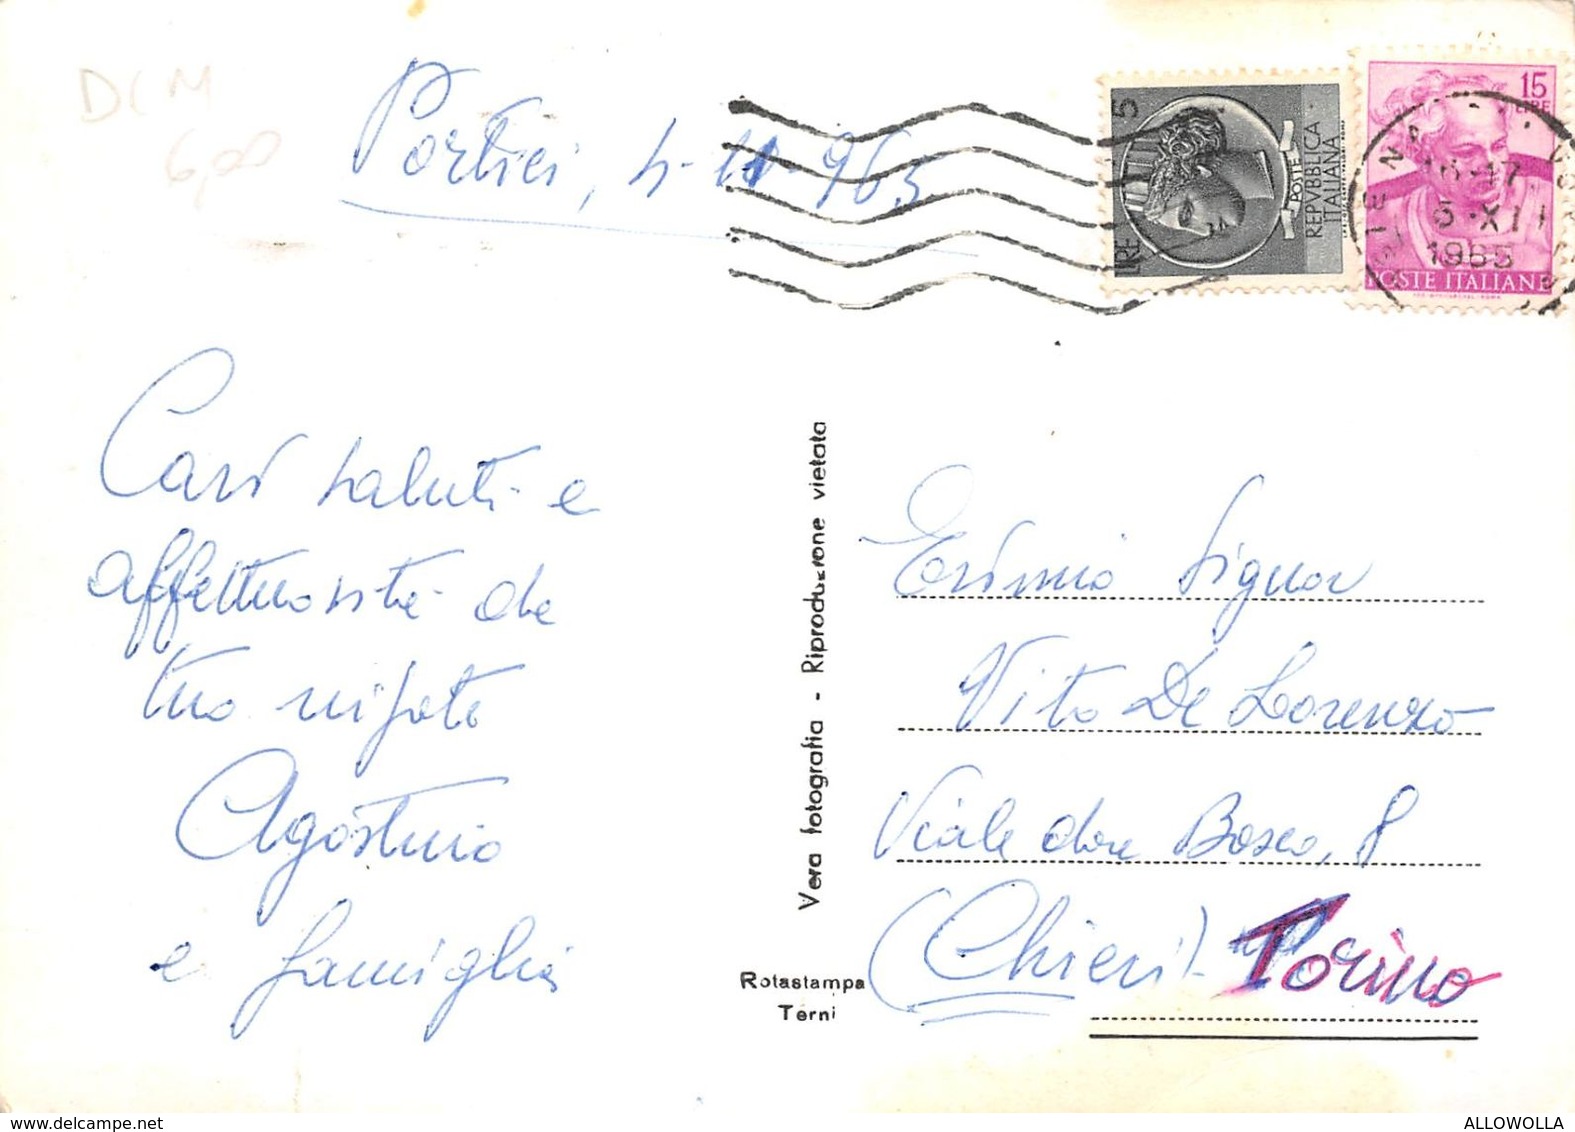 DCM
6,00
Portici, 4-11-965
LIRE 5
POSTE
REPVBBLICA
ITALIANA
15
LIRE
POSTE ITALIANE
16-17
1965
Cari saluti e
affettuosità da
tuo nipote
Agostino
e famiglia
Vera fotografia - Riproduzione vietata
Rotastampa
Terni
Esimio Signor
Vito De Lorenzo
Viale don Bosco, 8
(Chieri) - Torino
ALLOWOLLA